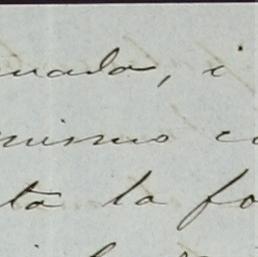 nada, i
mismo co
ta la fo